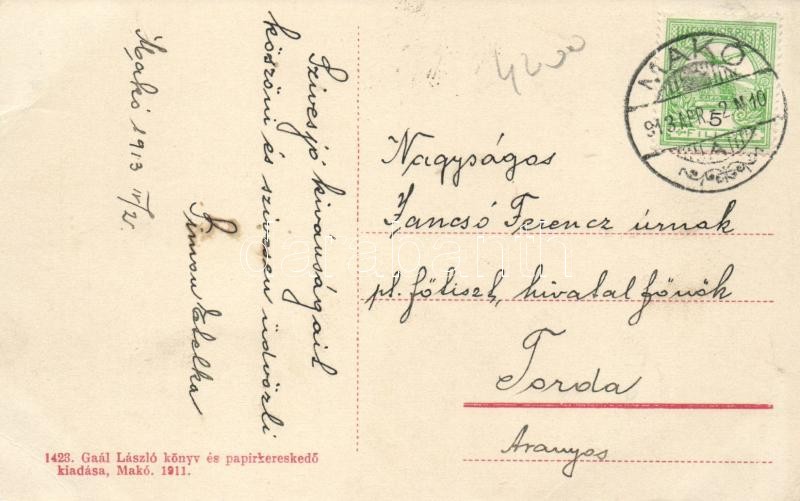 Makó 1913 IV/2.
Szives jó kivánságait
köszöni és szivesen üdvözli
Simon Etelka
4200
MAKÓ
913 APR. 2. M 10
5
FILLÉR
Nagyságos
Jancsó Ferencz úrnak
pt. főtiszt, hivatal főnök
Torda
Aranyos
1423. Gaál László könyv és papirkereskedő
kiadása, Makó. 1911.
darabanth